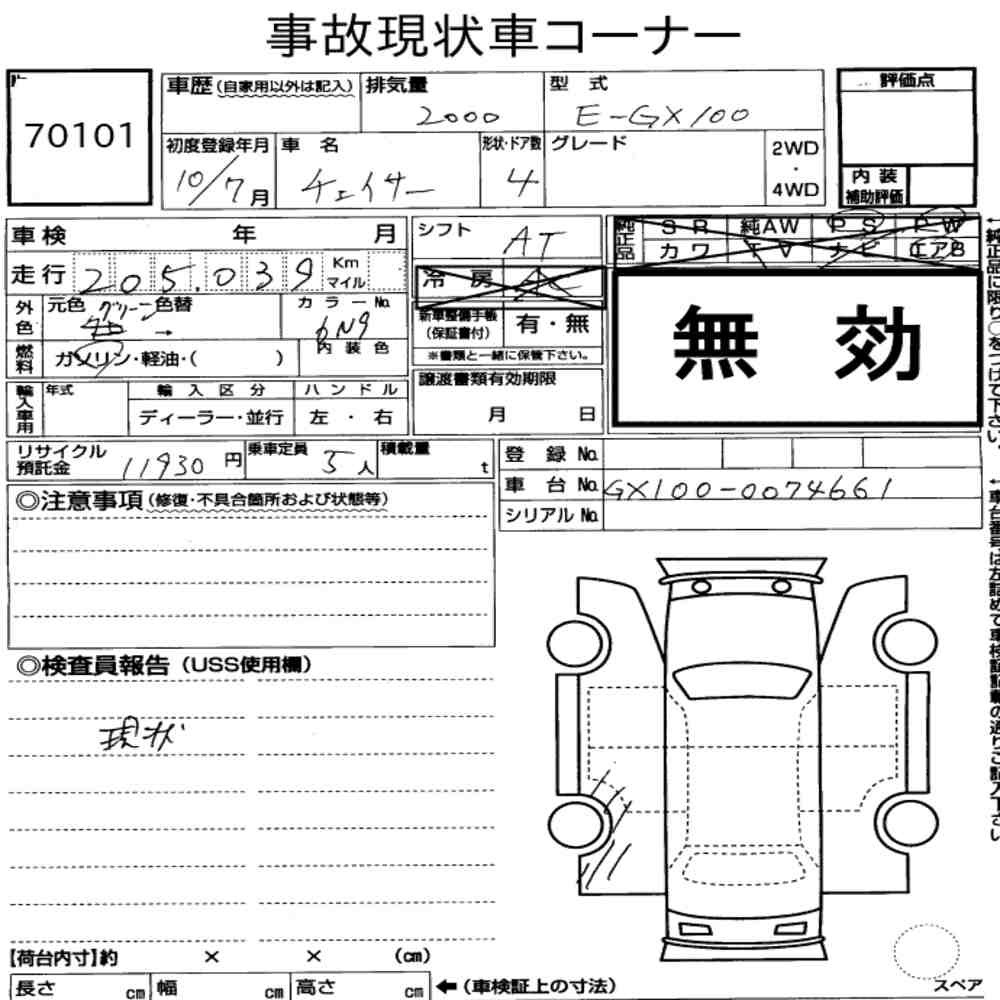 事故現状車コーナー
70101
車歴(自家用以外は記入) 排気量 2000 型式 E-GX100 評価点
初度登録年月 10/7月 車名 チェイサー 形状・ドア数 4 グレード 2WD・4WD
内装補助評価
車検 年 月 シフト AT 純正品 SR 純AW PS PW
走行 205.039 Km マイル 冷房 AC カワ TV ナビ エアB
外色 元色 グリーン 色替 → カラーNo. 6N9 新車整備手帳(保証書付) 有・無 無効
燃料 ガソリン・軽油・( ) 内装色 ※書類と一緒に保管下さい。
輸入車用 年式 輸入区分 ハンドル 譲渡書類有効期限
ディーラー・並行 左・右 月 日
リサイクル預託金 11930円 乗車定員 5人 積載量 t 登録No.
車台No. GX100-0074661
シリアルNo.
◎注意事項(修復・不具合箇所および状態等)
◎検査員報告(USS使用欄)
現状
【荷台内寸】約 × × (cm)
長さ cm 幅 cm 高さ cm ←(車検証上の寸法) スペア
←純正品に限り○をつけて下さい。
←車台番号は左詰めで車検証記載の通りご記入下さい